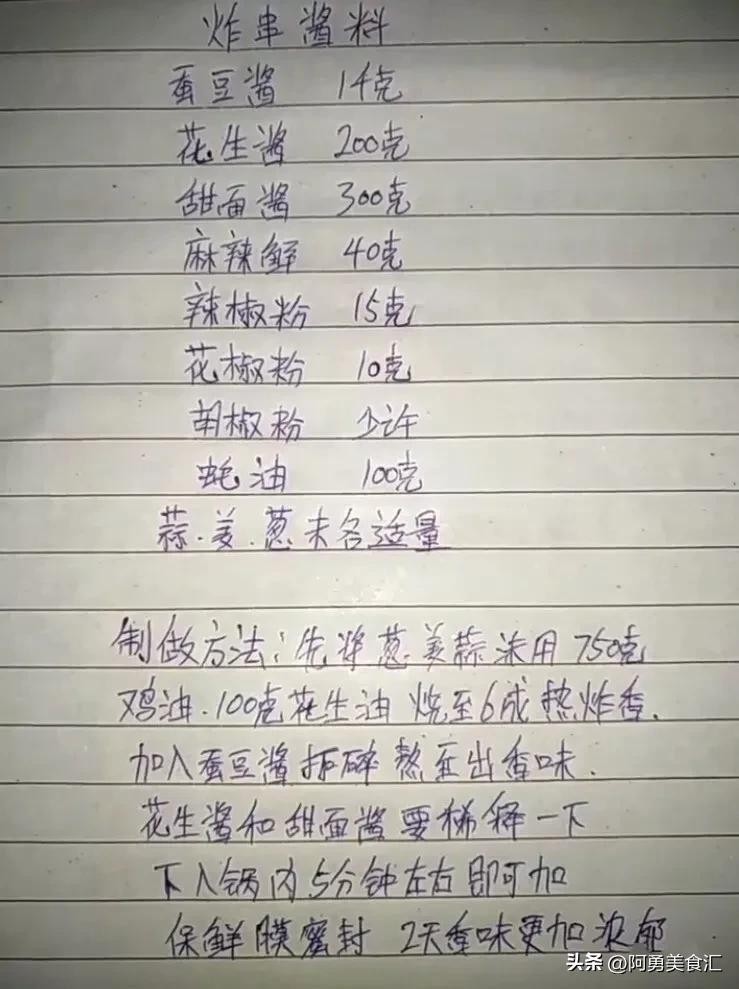 炸串酱料
蚕豆酱 14克
花生酱 200克
甜面酱 300克
麻辣鲜 40克
辣椒粉 15克
花椒粉 10克
胡椒粉 少许
蚝油 100克
蒜.姜.葱末各适量
制做方法:先将葱姜蒜沫用750克
鸡油.100克花生油 烧至6成热炸香.
加入蚕豆酱拒碎熬至出香味.
花生酱和甜面酱要稀释一下
下入锅内5分钟左右即可加
保鲜膜密封 2天香味更加浓郁
头条 @阿勇美食汇